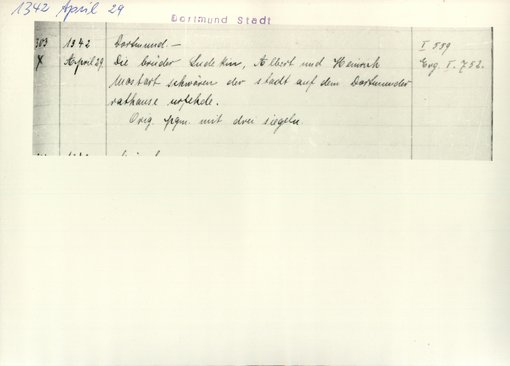 1342 April 29
Dortmund Stadt
303 1342 Dortmund.— I 559
X April 29. Die brüder Ludekin, Albert und Heinrich Erg. I. 752.
Mostart schwören der stadt auf dem Dortmunder
rathause urfehde.
Orig. pgm. mit drei siegeln.